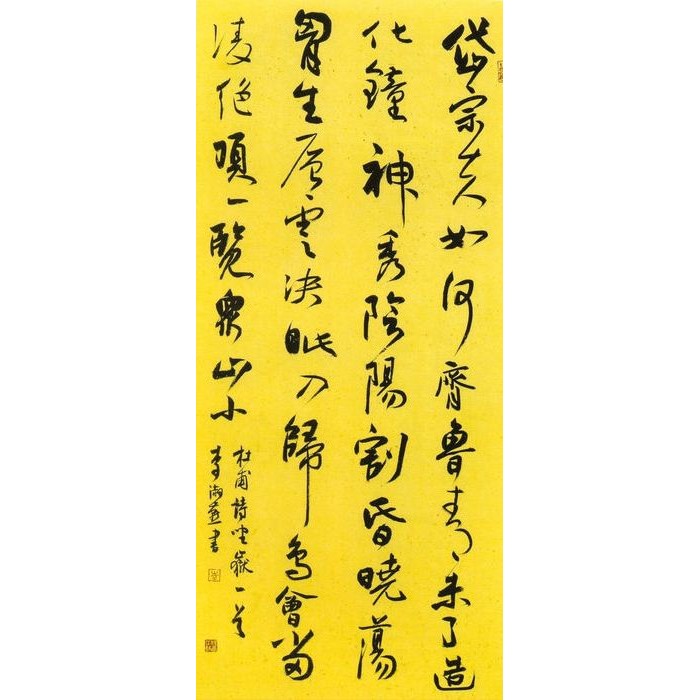 岱宗夫如何齊魯青未了造
化鐘神秀陰陽割昏曉蕩
胷生層雲決眦入歸鳥會當
凌絕頂一覽衆山小
杜甫詩望嶽一首
李淑燕書